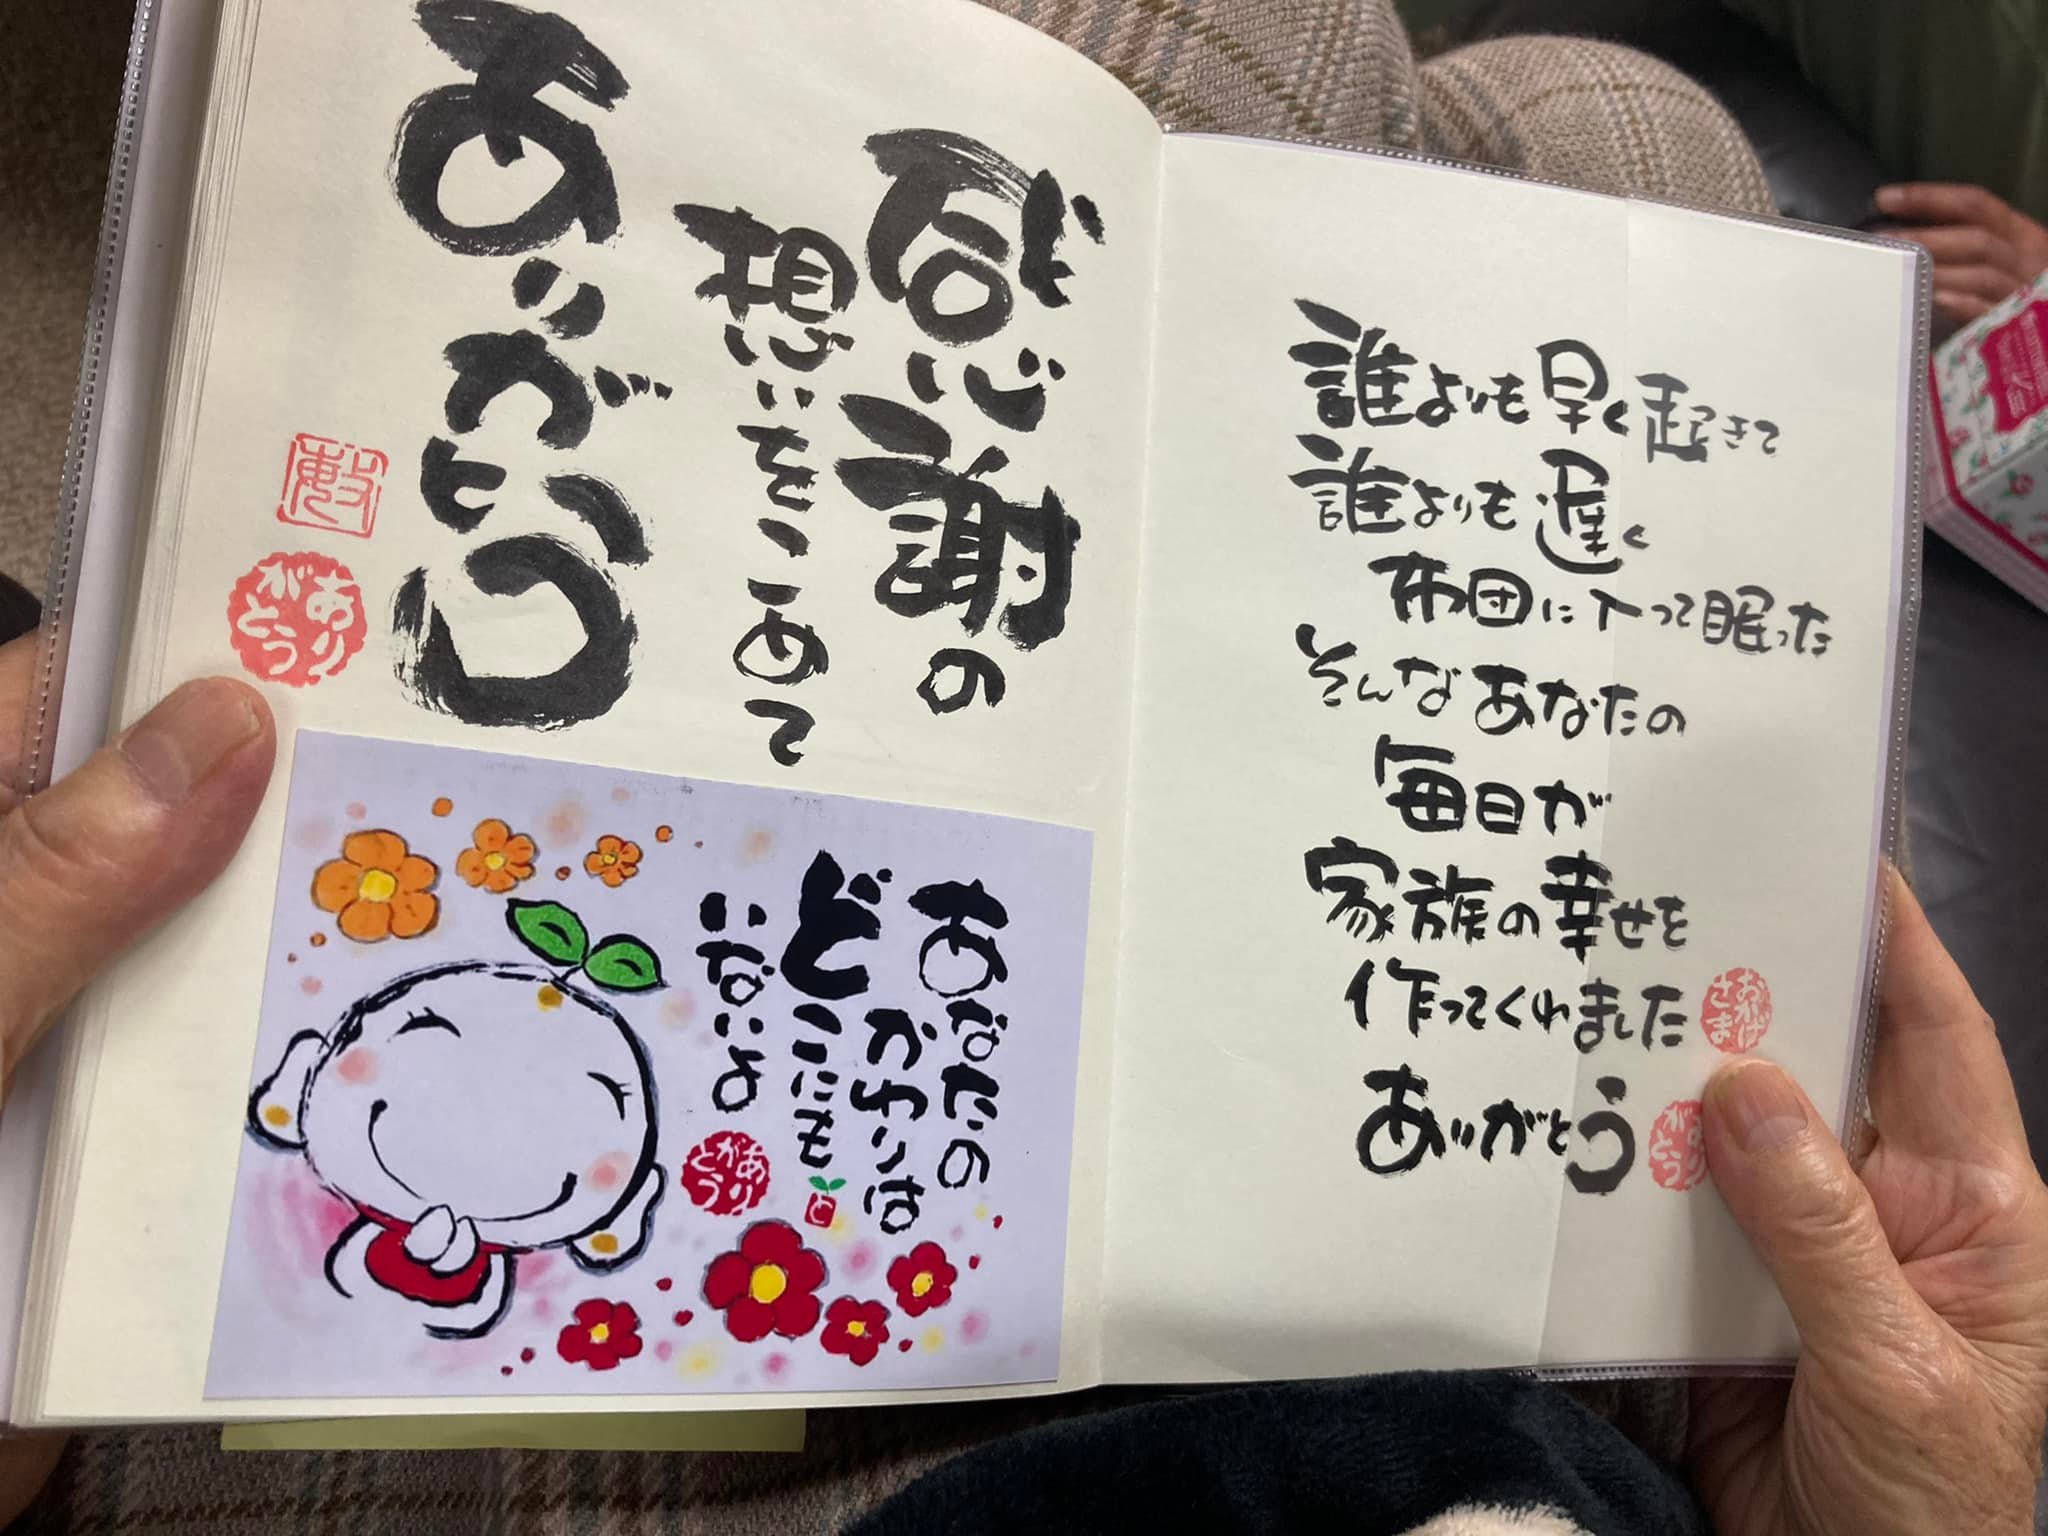 感謝の
想いをこめて
ありがとう
ありがとう
あなたの
かわりは
どこにも
いないよ
ありがとう
誰よりも早く起きて
誰よりも遅く
布団に入って眠った
そんなあなたの
毎日が
家族の幸せを
作ってくれました
おかげさま
ありがとう
ありがとう